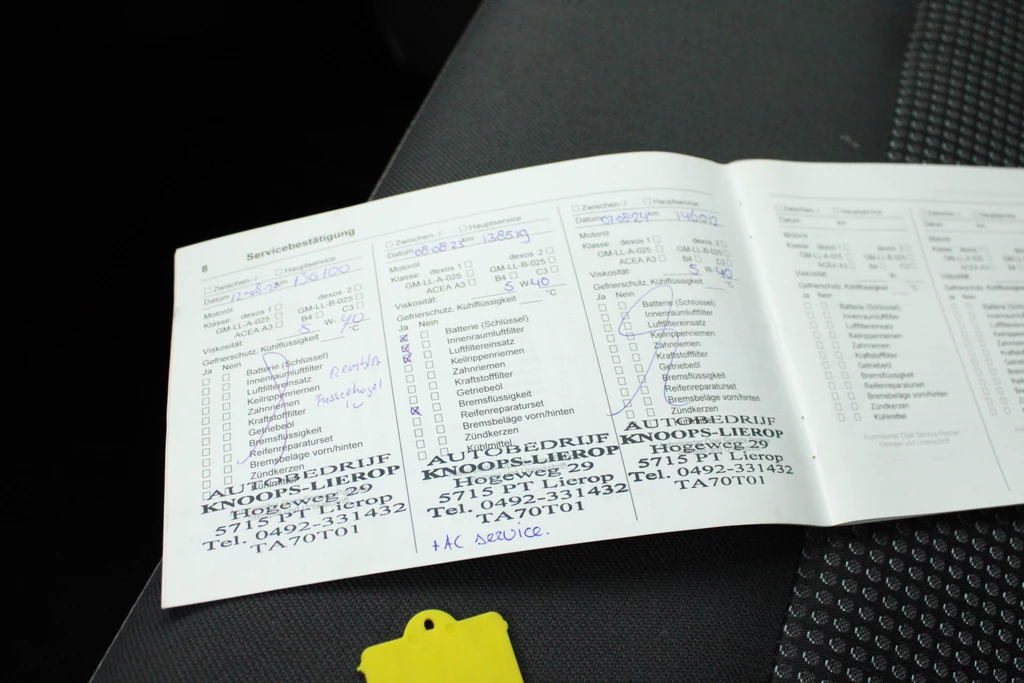 8 Servicebestätigung
Zwischen-/ Hauptservice
Datum 12-08-22 km 136100
Motoröl
Klasse: dexos 1 dexos 2
GM-LL-A-025 GM-LL-B-025
ACEA A3 B4 C3
Viskosität: 5 W- 40
Gefrierschutz, Kühlflüssigkeit °C
Ja Nein
Batterie (Schlüssel)
Innenraumluftfilter
Luftfiltereinsatz
Keilrippenriemen
Zahnriemen
Kraftstofffilter
Getriebeöl
Bremsflüssigkeit
Reifenreparaturset
Bremsbeläge vorn/hinten
Zündkerzen
Kühlmittel
AUTOBEDRIJF
KNOOPS-LIEROP
Hogeweg 29
5715 PT Lierop
Tel. 0492-331432
TA70T01
Zwischen-/ Hauptservice
Datum 08-08-23 km 138519
Motoröl
Klasse: dexos 1 dexos 2
GM-LL-A-025 GM-LL-B-025
ACEA A3 B4 C3
Viskosität: 5 W- 40
Gefrierschutz, Kühlflüssigkeit °C
Ja Nein
Batterie (Schlüssel)
Innenraumluftfilter
Luftfiltereinsatz
Keilrippenriemen
Zahnriemen
Kraftstofffilter
Getriebeöl
Bremsflüssigkeit
Reifenreparaturset
Bremsbeläge vorn/hinten
Zündkerzen
Kühlmittel
AUTOBEDRIJF
KNOOPS-LIEROP
Hogeweg 29
5715 PT Lierop
Tel. 0492-331432
TA70T01
+AC service.
Zwischen-/ Hauptservice
Datum 07-08-24 km 146012
Motoröl
Klasse: dexos 1 dexos 2
GM-LL-A-025 GM-LL-B-025
ACEA A3 B4 C3
Viskosität: 5 W- 40
Gefrierschutz, Kühlflüssigkeit °C
Ja Nein
Batterie (Schlüssel)
Innenraumluftfilter
Luftfiltereinsatz
Keilrippenriemen
Zahnriemen
Kraftstofffilter
Getriebeöl
Bremsflüssigkeit
Reifenreparaturset
Bremsbeläge vorn/hinten
Zündkerzen
AUTOBEDRIJF
KNOOPS-LIEROP
Hogeweg 29
5715 PT Lierop
Tel. 0492-331432
TA70T01
Zwischen-/ Hauptservice
Datum km
Motoröl
Klasse: dexos 1 dexos 2
GM-LL-A-025 GM-LL-B-025
ACEA A3 B4 C3
Viskosität: W-
Gefrierschutz, Kühlflüssigkeit °C
Ja Nein
Batterie (Schlüssel)
Innenraumluftfilter
Luftfiltereinsatz
Keilrippenriemen
Zahnriemen
Kraftstofffilter
Getriebeöl
Bremsflüssigkeit
Reifenreparaturset
Bremsbeläge vorn/hinten
Zündkerzen
Kühlmittel
Autorisierter Opel Service Partner
Stempel und Unterschrift